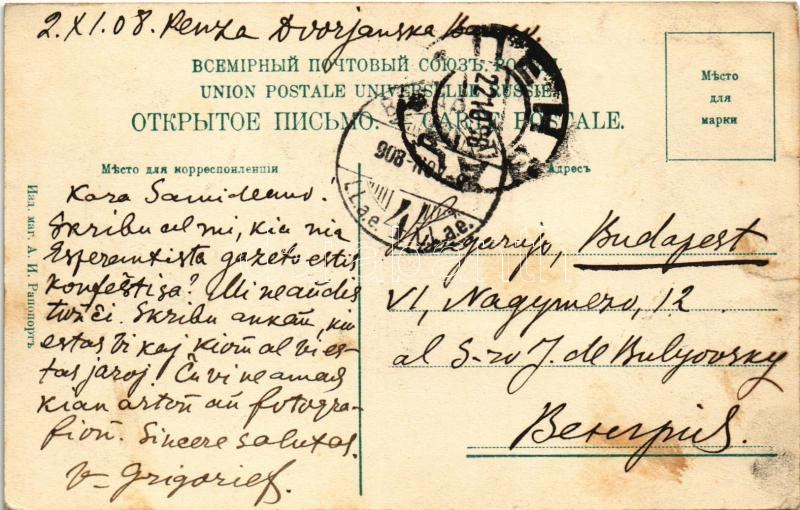 2.XI.08. Penza Dvorjanska
ВСЕМІРНЫЙ ПОЧТОВЫЙ СОЮЗЪ.
UNION POSTALE UNIVERSELLE RUSSIE
ОТКРЫТОЕ ПИСЬМО. — CARTE POSTALE.
Мѣсто
для
марки
Мѣсто для корреспонденціи
Адресъ
908 NOV
Изд. маг. А. И. Рапопортъ
Kara Samideano!
Skribu al mi, kia nia
Esperantista gazeto estis
? Mi neaŭdis
. Skribu ankaŭ, kiu
estas Vi kaj kiom al Vi es-
tas jaroj. Ĉu vi ne amas
kian arton aŭ fotogra-
fion. Sincere salutas.
V– Grigorief.
Hungarujo, Budapest
VI, Nagymezo, 12
al S-ro J. de Bulyovszky
Венгрія.